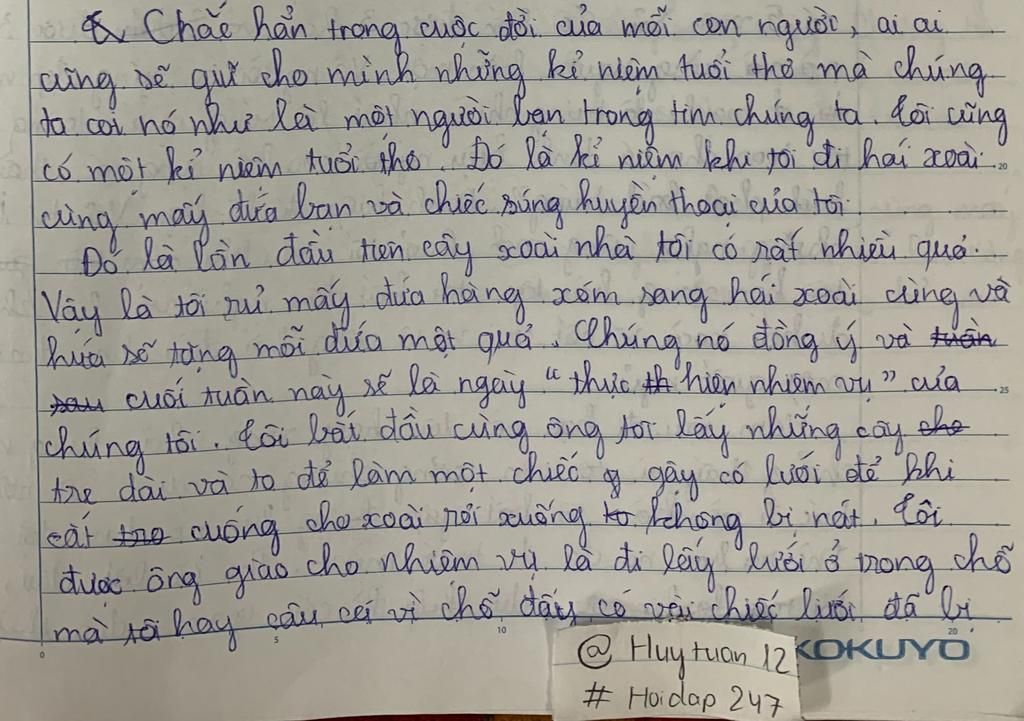 Chắc hẳn trong cuộc đời của mỗi con người, ai ai
cũng sẽ giữ cho mình những kỉ niệm tuổi thơ mà chúng
ta coi nó như là một người bạn trong tim chúng ta. Tôi cũng
có một kỉ niệm tuổi thơ. Đó là kỉ niệm khi tôi đi hái xoài
cùng mấy đứa bạn và chiếc súng huyền thoại của tôi.
Đó là lần đầu tiên cây xoài nhà tôi có rất nhiều quả.
Vậy là tôi rủ mấy đứa hàng xóm sang hái xoài cùng và
hứa sẽ tặng mỗi đứa một quả. Chúng nó đồng ý và tuần
sau cuối tuần này sẽ là ngày "thực th hiện nhiệm vụ" của
chúng tôi. Tôi bắt đầu cùng ông tôi lấy những cây cho
tre dài và to để làm một chiếc g gậy có lưới để khi
cắt tre cuống cho xoài rơi xuống to không bị nát. Tôi
được ông giao cho nhiệm vụ là đi lấy lưới ở trong chỗ
mà tôi hay câu cá vì chỗ đấy có vài chiếc lưới đã bị
@ Huytuan 12
# Hoidap 247
KOKUYO
20
25
0
5
10
20